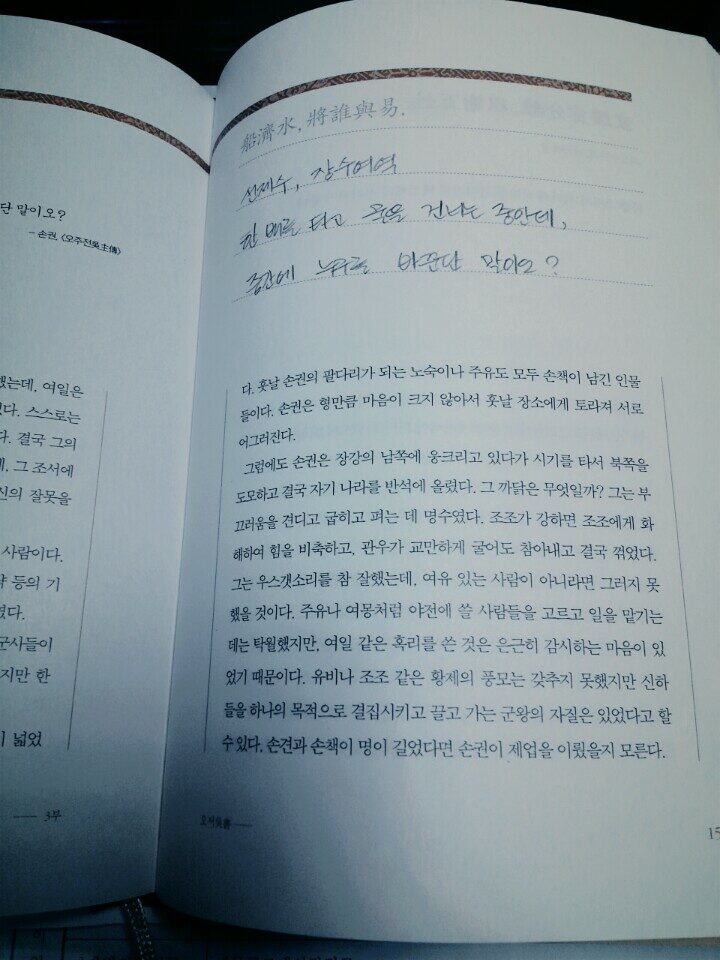 단 말이오?
– 손권, 〈오주전吳主傳〉
했는데, 여일은
다. 스스로는
다. 결국 그의
에, 그 조서에
신의 잘못을
사람이다.
약 등의 기
였다.
군사들이
지만 한
이 넓었
— 3부
船濟水, 將誰與易.
선제수, 장수여역
한 배를 타고 물을 건너는 중인데,
중간에 누구를 바꾼단 말이오?
다. 훗날 손권의 팔다리가 되는 노숙이나 주유도 모두 손책이 남긴 인물
들이다. 손권은 형만큼 마음이 크지 않아서 훗날 장소에게 토라져 서로
어그러진다.
그럼에도 손권은 장강의 남쪽에 웅크리고 있다가 시기를 타서 북쪽을
도모하고 결국 자기 나라를 반석에 올렸다. 그 까닭은 무엇일까? 그는 부
끄러움을 견디고 굽히고 펴는 데 명수였다. 조조가 강하면 조조에게 화
해하여 힘을 비축하고, 관우가 교만하게 굴어도 참아내고 결국 꺾었다.
그는 우스갯소리를 참 잘했는데, 여유 있는 사람이 아니라면 그러지 못
했을 것이다. 주유나 여몽처럼 야전에 쓸 사람들을 고르고 일을 맡기는
데는 탁월했지만, 여일 같은 혹리를 쓴 것은 은근히 감시하는 마음이 있
었기 때문이다. 유비나 조조 같은 황제의 풍모는 갖추지 못했지만 신하
들을 하나의 목적으로 결집시키고 끌고 가는 군왕의 자질은 있었다고 할
수 있다. 손견과 손책이 명이 길었다면 손권이 제업을 이뤘을지 모른다.
오서吳書 —
15